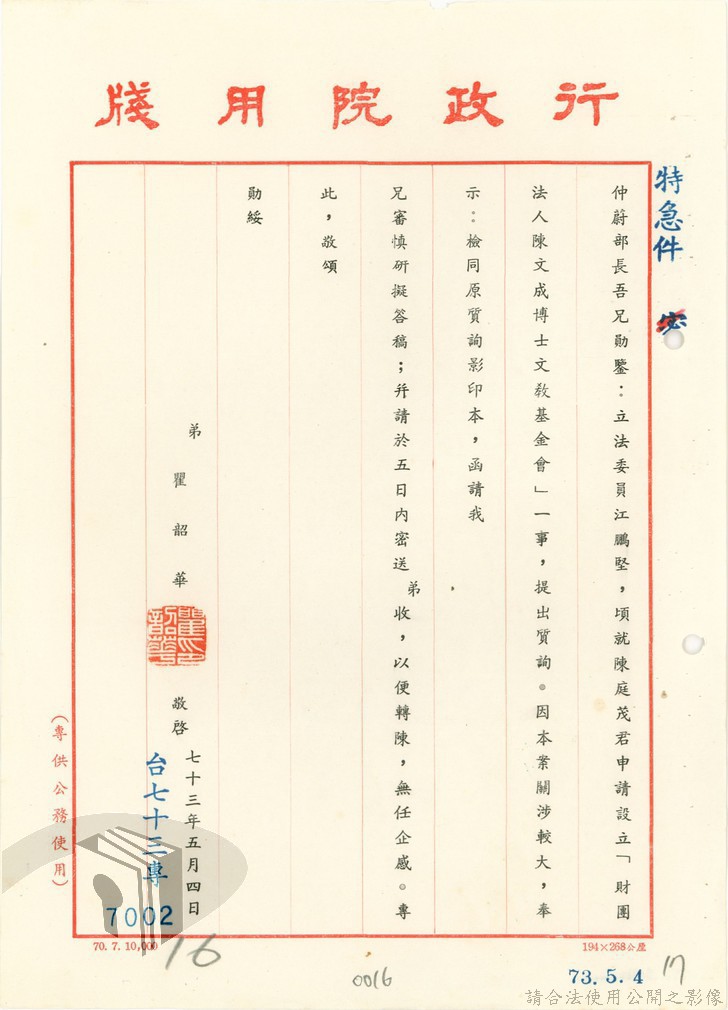 行政院用牋
特急件
密
仲蔚部長吾兄勛鑒：立法委員江鵬堅，頃就陳庭茂君申請設立「財團
法人陳文成博士文教基金會」一事，提出質詢。因本案關涉較大，奉
示：檢同原質詢影印本，函請我
兄審慎研擬答稿；并請於五日內密送弟收，以便轉陳，無任企感。專
此，敬頌
勛綏
弟 瞿韶華 敬啓
瞿韶華印
七十三年五月四日
台七十三專
7002
（專供公務使用）
70. 7. 10,000
194×268公厘
16
0016
73.5.4
17
請合法使用公開之影像